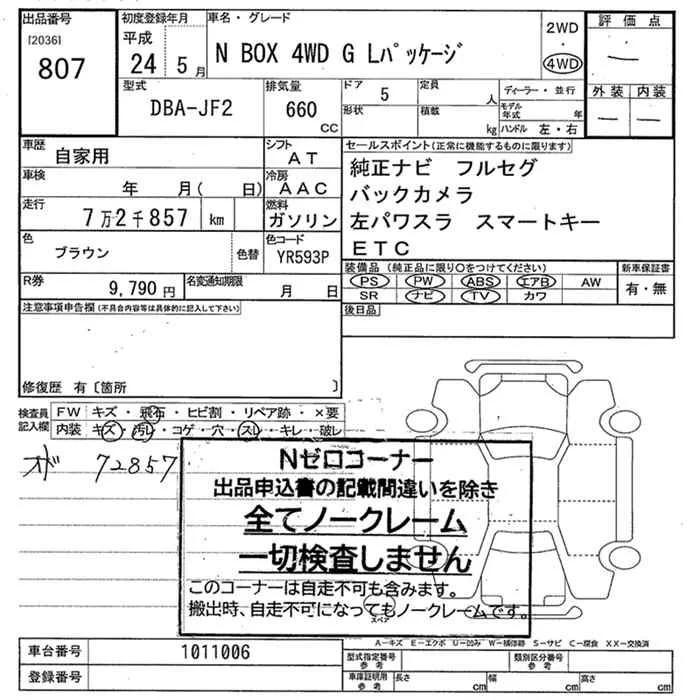 出品番号
[2036]
807
初度登録年月
平成
24 5月
車名・グレード
N BOX 4WD G Lパッケージ
2WD
・
4WD
評価点
―
外装 内装
― ―
型式
DBA-JF2
排気量
660
CC
ドア 5
形状
定員 人
積載 kg
ディーラー・並行
モデル年式 年
ハンドル 左・右
車歴
自家用
シフト
AT
車検
年 月( 日)
冷房
AAC
走行
7万2千857 km
燃料
ガソリン
色
ブラウン
色替
色コード
YR593P
R券
9,790円
名変通知期限
月 日
セールスポイント(正常に機能するものに限ります)
純正ナビ フルセグ
バックカメラ
左パワスラ スマートキー
ETC
装備品(純正品に限り○をつけてください)
PS PW ABS エアB AW
SR ナビ TV カワ
新車保証書
有・無
後日品
注意事項申告欄(不具合内容等は具体的に記入して下さい)
修復歴 有〔箇所 〕
検査員
記入欄
FW キズ・飛石・ヒビ割・リペア跡・×要
内装 キズ・汚レ・コゲ・穴・スレ・キレ・破レ
72857
Nゼロコーナー
出品申込書の記載間違いを除き
全てノークレーム
一切検査しません
このコーナーは自走不可も含みます。
搬出時、自走不可になってもノークレームです。
スペア
A―キズ E―エクボ U―凹み W―補修跡 S―サビ C―腐食 XX―交換済
車台番号
1011006
登録番号
型式指定番号
参考
類別区分番号
参考
車庫証明用
参考
長さ cm
幅 cm
高さ cm